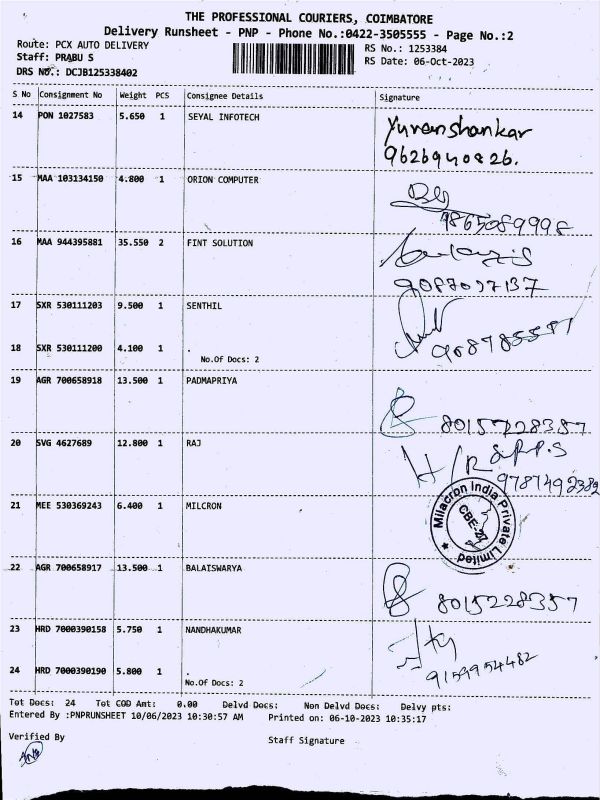 THE PROFESSIONAL COURIERS, COIMBATORE
Delivery Runsheet - PNP - Phone No.:0422-3505555 - Page No.:2
Route: PCX AUTO DELIVERY
RS No.: 1253384
Staff: PRABU S
RS Date: 06-Oct-2023
DRS NO.: DCJB125338402
S No Consignment No Weight PCS Consignee Details Signature
14 PON 1027583 5.650 1 SEYAL INFOTECH
Yuvanshankar
9626940826.
15 MAA 103134150 4.800 1 ORION COMPUTER
9865089998
16 MAA 944395881 35.550 2 FINT SOLUTION
9087097137
17 SXR 530111203 9.500 1 SENTHIL
9087855581
18 SXR 530111200 4.100 1 .
No.Of Docs: 2
19 AGR 700658918 13.500 1 PADMAPRIYA
8015228357
20 SVG 4627689 12.800 1 RAJ
H/R
9787492382
21 MEE 530369243 6.400 1 MILCRON
Milacron India Private Limited
CBE-27
22 AGR 700658917 13.500 1 BALAISWARYA
8015228357
23 HRD 7000390158 5.750 1 NANDHAKUMAR
9159954482
24 HRD 7000390190 5.800 1 .
No.Of Docs: 2
Tot Docs: 24 Tot COD Amt: 0.00 Delvd Docs: Non Delvd Docs: Delvy pts:
Entered By :PNPRUNSHEET 10/06/2023 10:30:57 AM Printed on: 06-10-2023 10:35:17
Verified By
Staff Signature